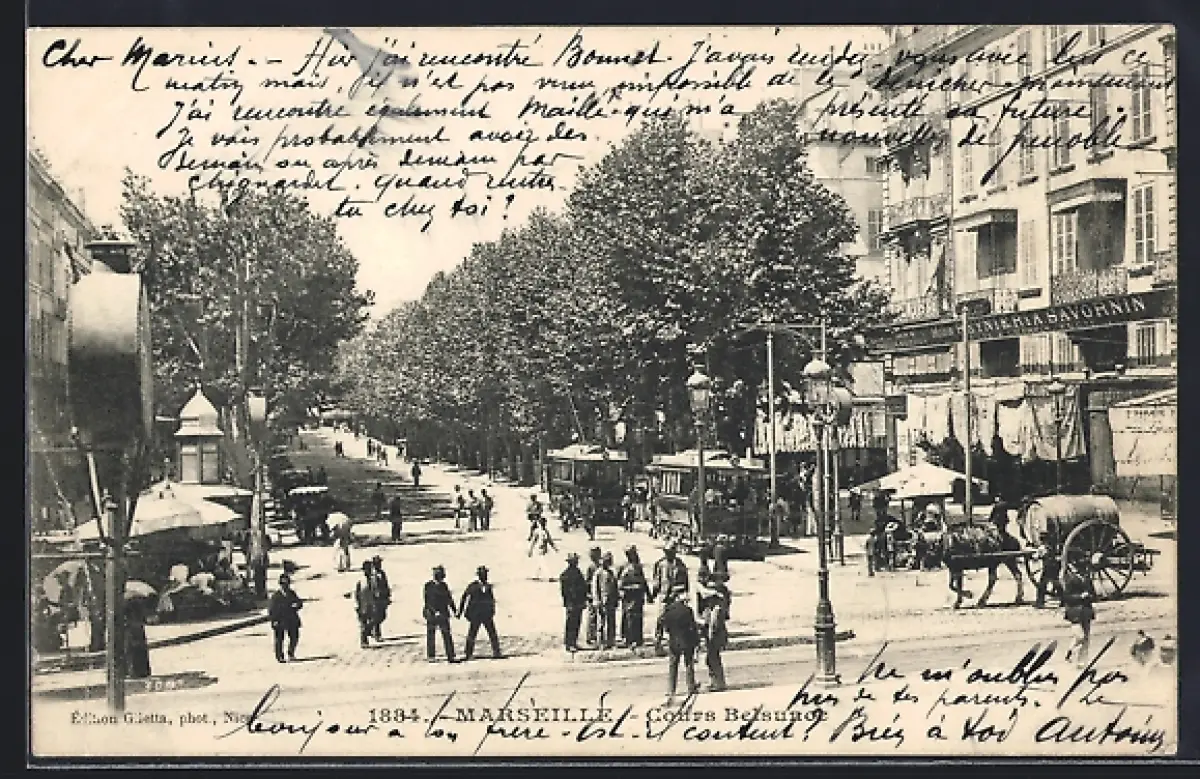 Cher Marius. - Hier j'ai rencontré Bonnet. J'avais rendez-vous avec lui ce
matin mais, il n'est pas venu, impossible de le
J'ai rencontré également Maille qui m'a présenté sa future
Je vais probablement avoir des nouvelles de
demain ou après demain par
Chignardet. Quand rentre
tu chez toi?
INIERIA SAVORNIN
Édition Giletta, phot., Nice
1884. - MARSEILLE - Cours Belsunce
bonjour à ton frère. Est-il content?
Ne m'oublie pas
près de tes parents.
Bien à toi Antonin